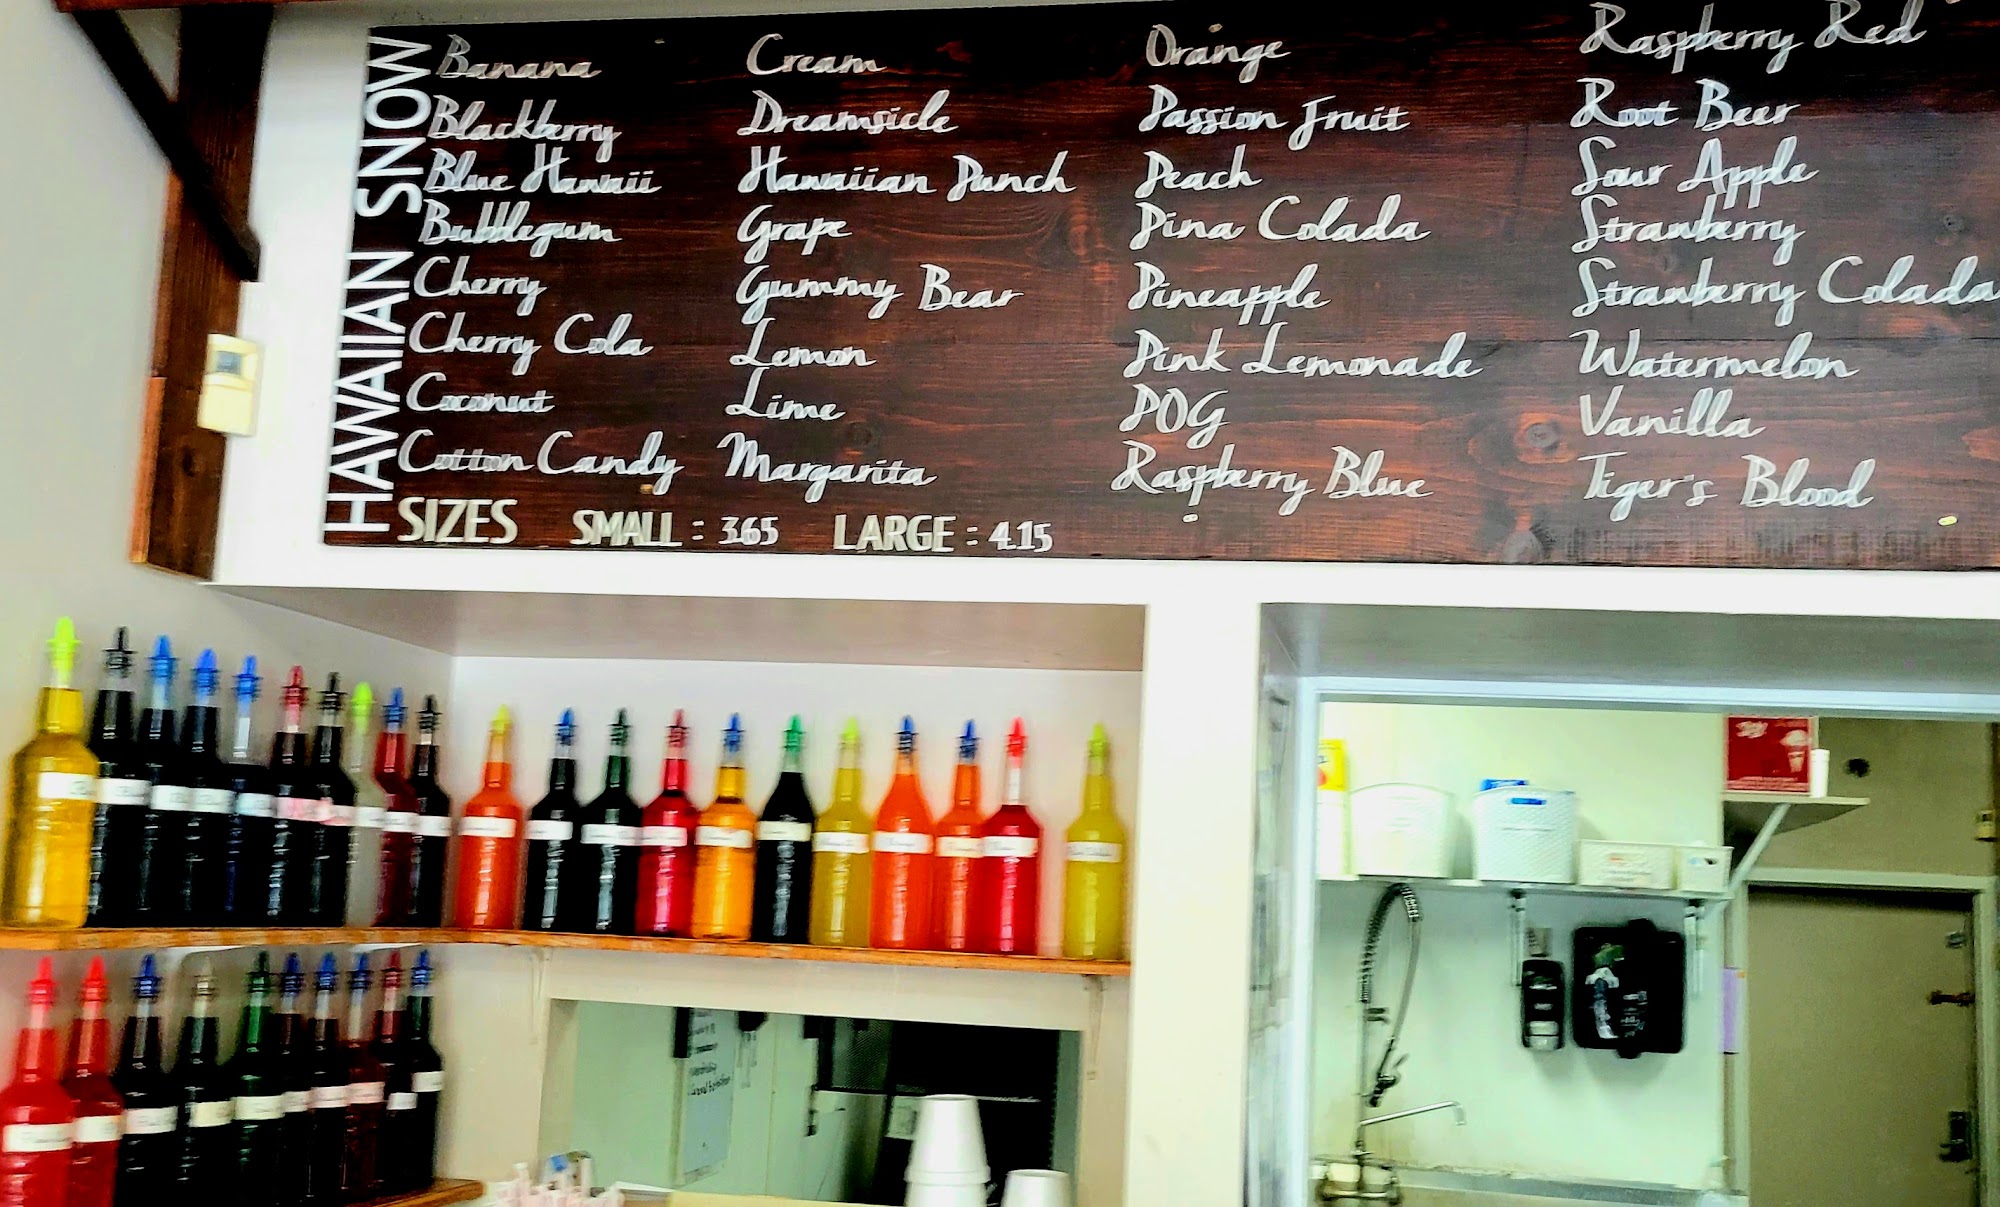 HAWAIIAN SNOW
Banana
Blackberry
Blue Hawaii
Bubblegum
Cherry
Cherry Cola
Coconut
Cotton Candy
Cream
Dreamsicle
Hawaiian Punch
Grape
Gummy Bear
Lemon
Lime
Margarita
Orange
Passion Fruit
Peach
Pina Colada
Pineapple
Pink Lemonade
POG
Raspberry Blue
Raspberry Red
Root Beer
Sour Apple
Strawberry
Strawberry Colada
Watermelon
Vanilla
Tiger's Blood
SIZES SMALL : 3.65 LARGE : 4.15